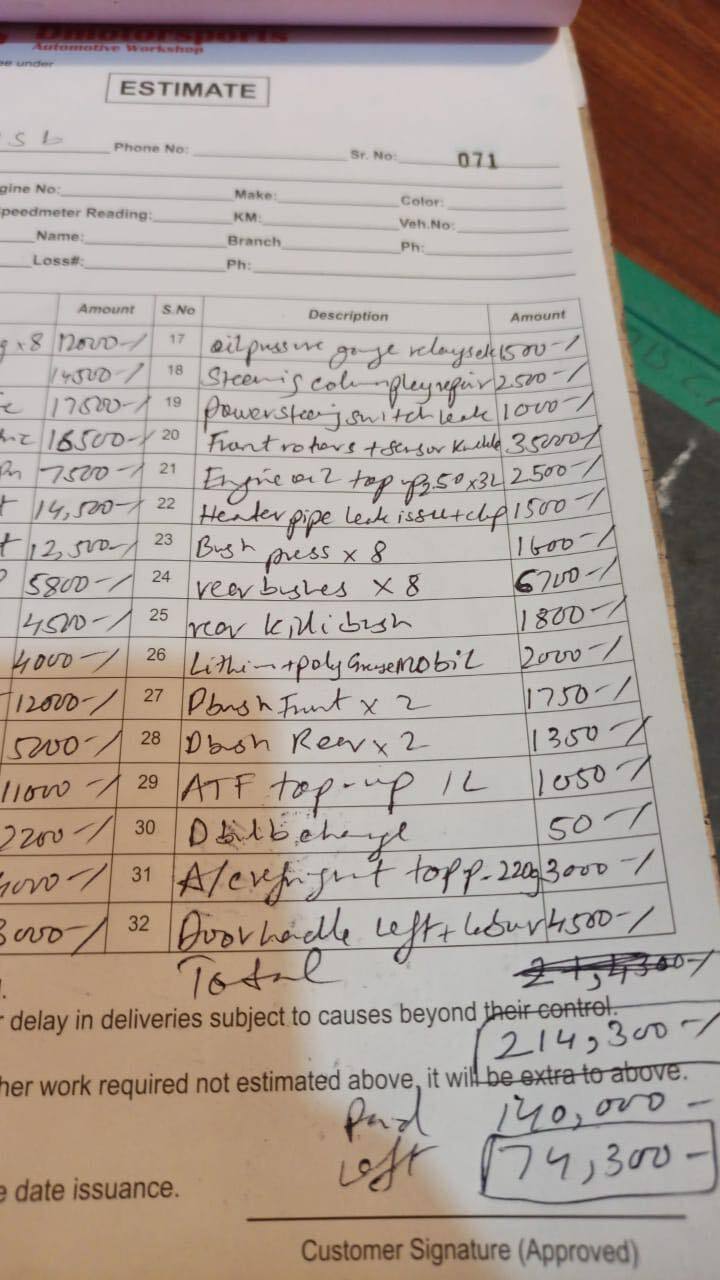 Dmotorsports
Automotive Workshop
ee under
ESTIMATE
Phone No: Sr. No: 071
gine No: Make: Color:
peedmeter Reading: KM: Veh.No:
Name: Branch Ph:
Loss#: Ph:
Amount S.No Description Amount
g x 8 12000-/ 17 oil pressure gauge relay 1500-/
14500-/ 18 Steering column play repair 2500-/
17500-/ 19 powersteering switch leak 1000-/
16500-/ 20 Front rotors + sensor knuckle 35000-/
7500-/ 21 Engine oil top up 3L 2500-/
t 14,500-/ 22 Header pipe leak issue + clip 1500-/
t 12,500-/ 23 Bush press x 8 1600-/
5800-/ 24 rear bushes x 8 6700-/
4500-/ 25 rear killi bush 1800-/
4000-/ 26 Lithium + poly Grease MOBIL 2000-/
12000-/ 27 Dbush Front x 2 1750-/
5200-/ 28 Dbush Rear x 2 1350-/
11000-/ 29 ATF top-up 1L 1050-/
2200-/ 30 change 50-/
000-/ 31 A/c topp-220g 3000-/
3000-/ 32 Door handle left + labur 4500-/
Total
r delay in deliveries subject to causes beyond their control.
214,300-/
her work required not estimated above, it will be extra to above.
Paid 140,000-
Left 74,300-
e date issuance.
Customer Signature (Approved)